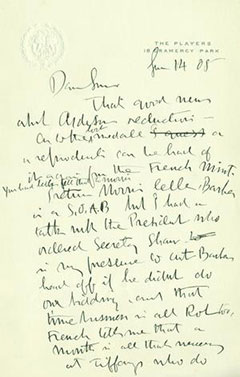 THE PLAYERS
16 GRAMERCY PARK
Jun 14 05
Dear
That good news
about reduction
the medal or
a reproduction can be had of
it from the French Mint.
letter. Barber
is a S.O.A.B but I had a
talk with the President who
ordered Secretary Shaw
in my presence to cut Barber's
head off if he didn't do
our bidding and that
time business is all Rot too,
French tells me that a
month is all that necessary
at Tiffanys who do